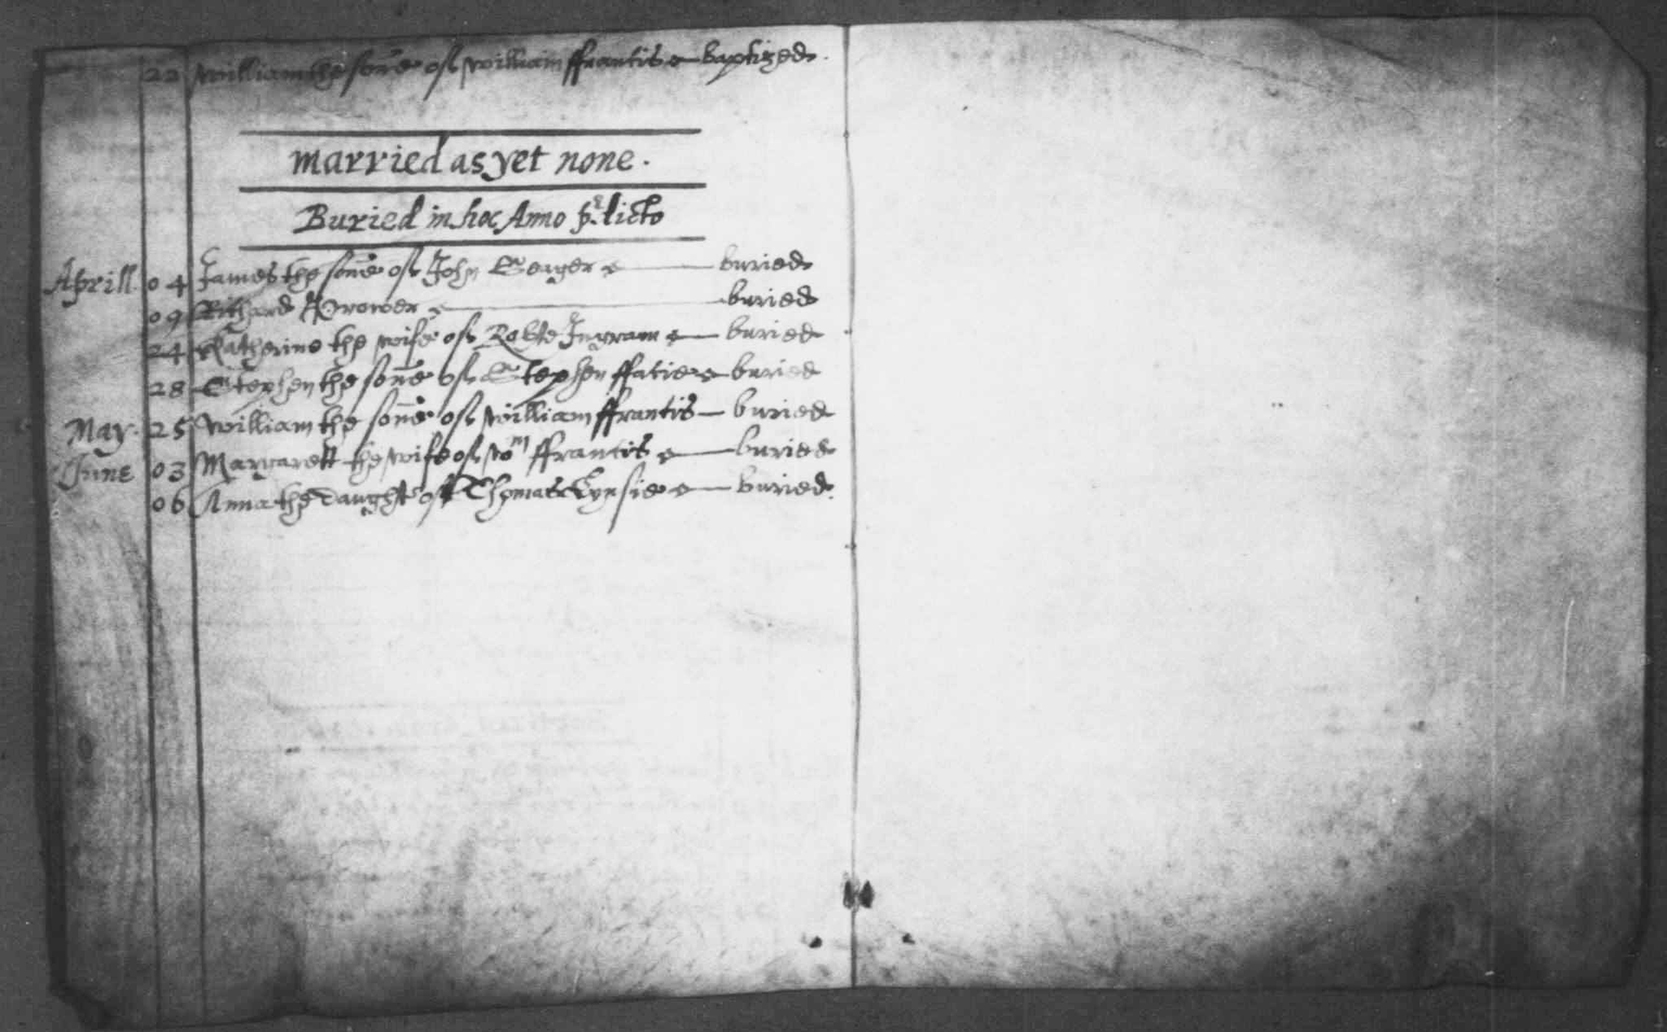 22 William the sonne of William ffrancis baptized.
married as yet none.
Buried in hoc Anno p:dicto
Aprill 04 James the sonne of John buried
09 Richard buried
24 Katherine the wife of Robte Ingram buried
28 Stephen the sonne of Stephen buried
May 25 William the sonne of William ffrancis buried
June 03 Margarett the wife of Wm ffrancis buried
06 Anna the daught of Thomas buried.